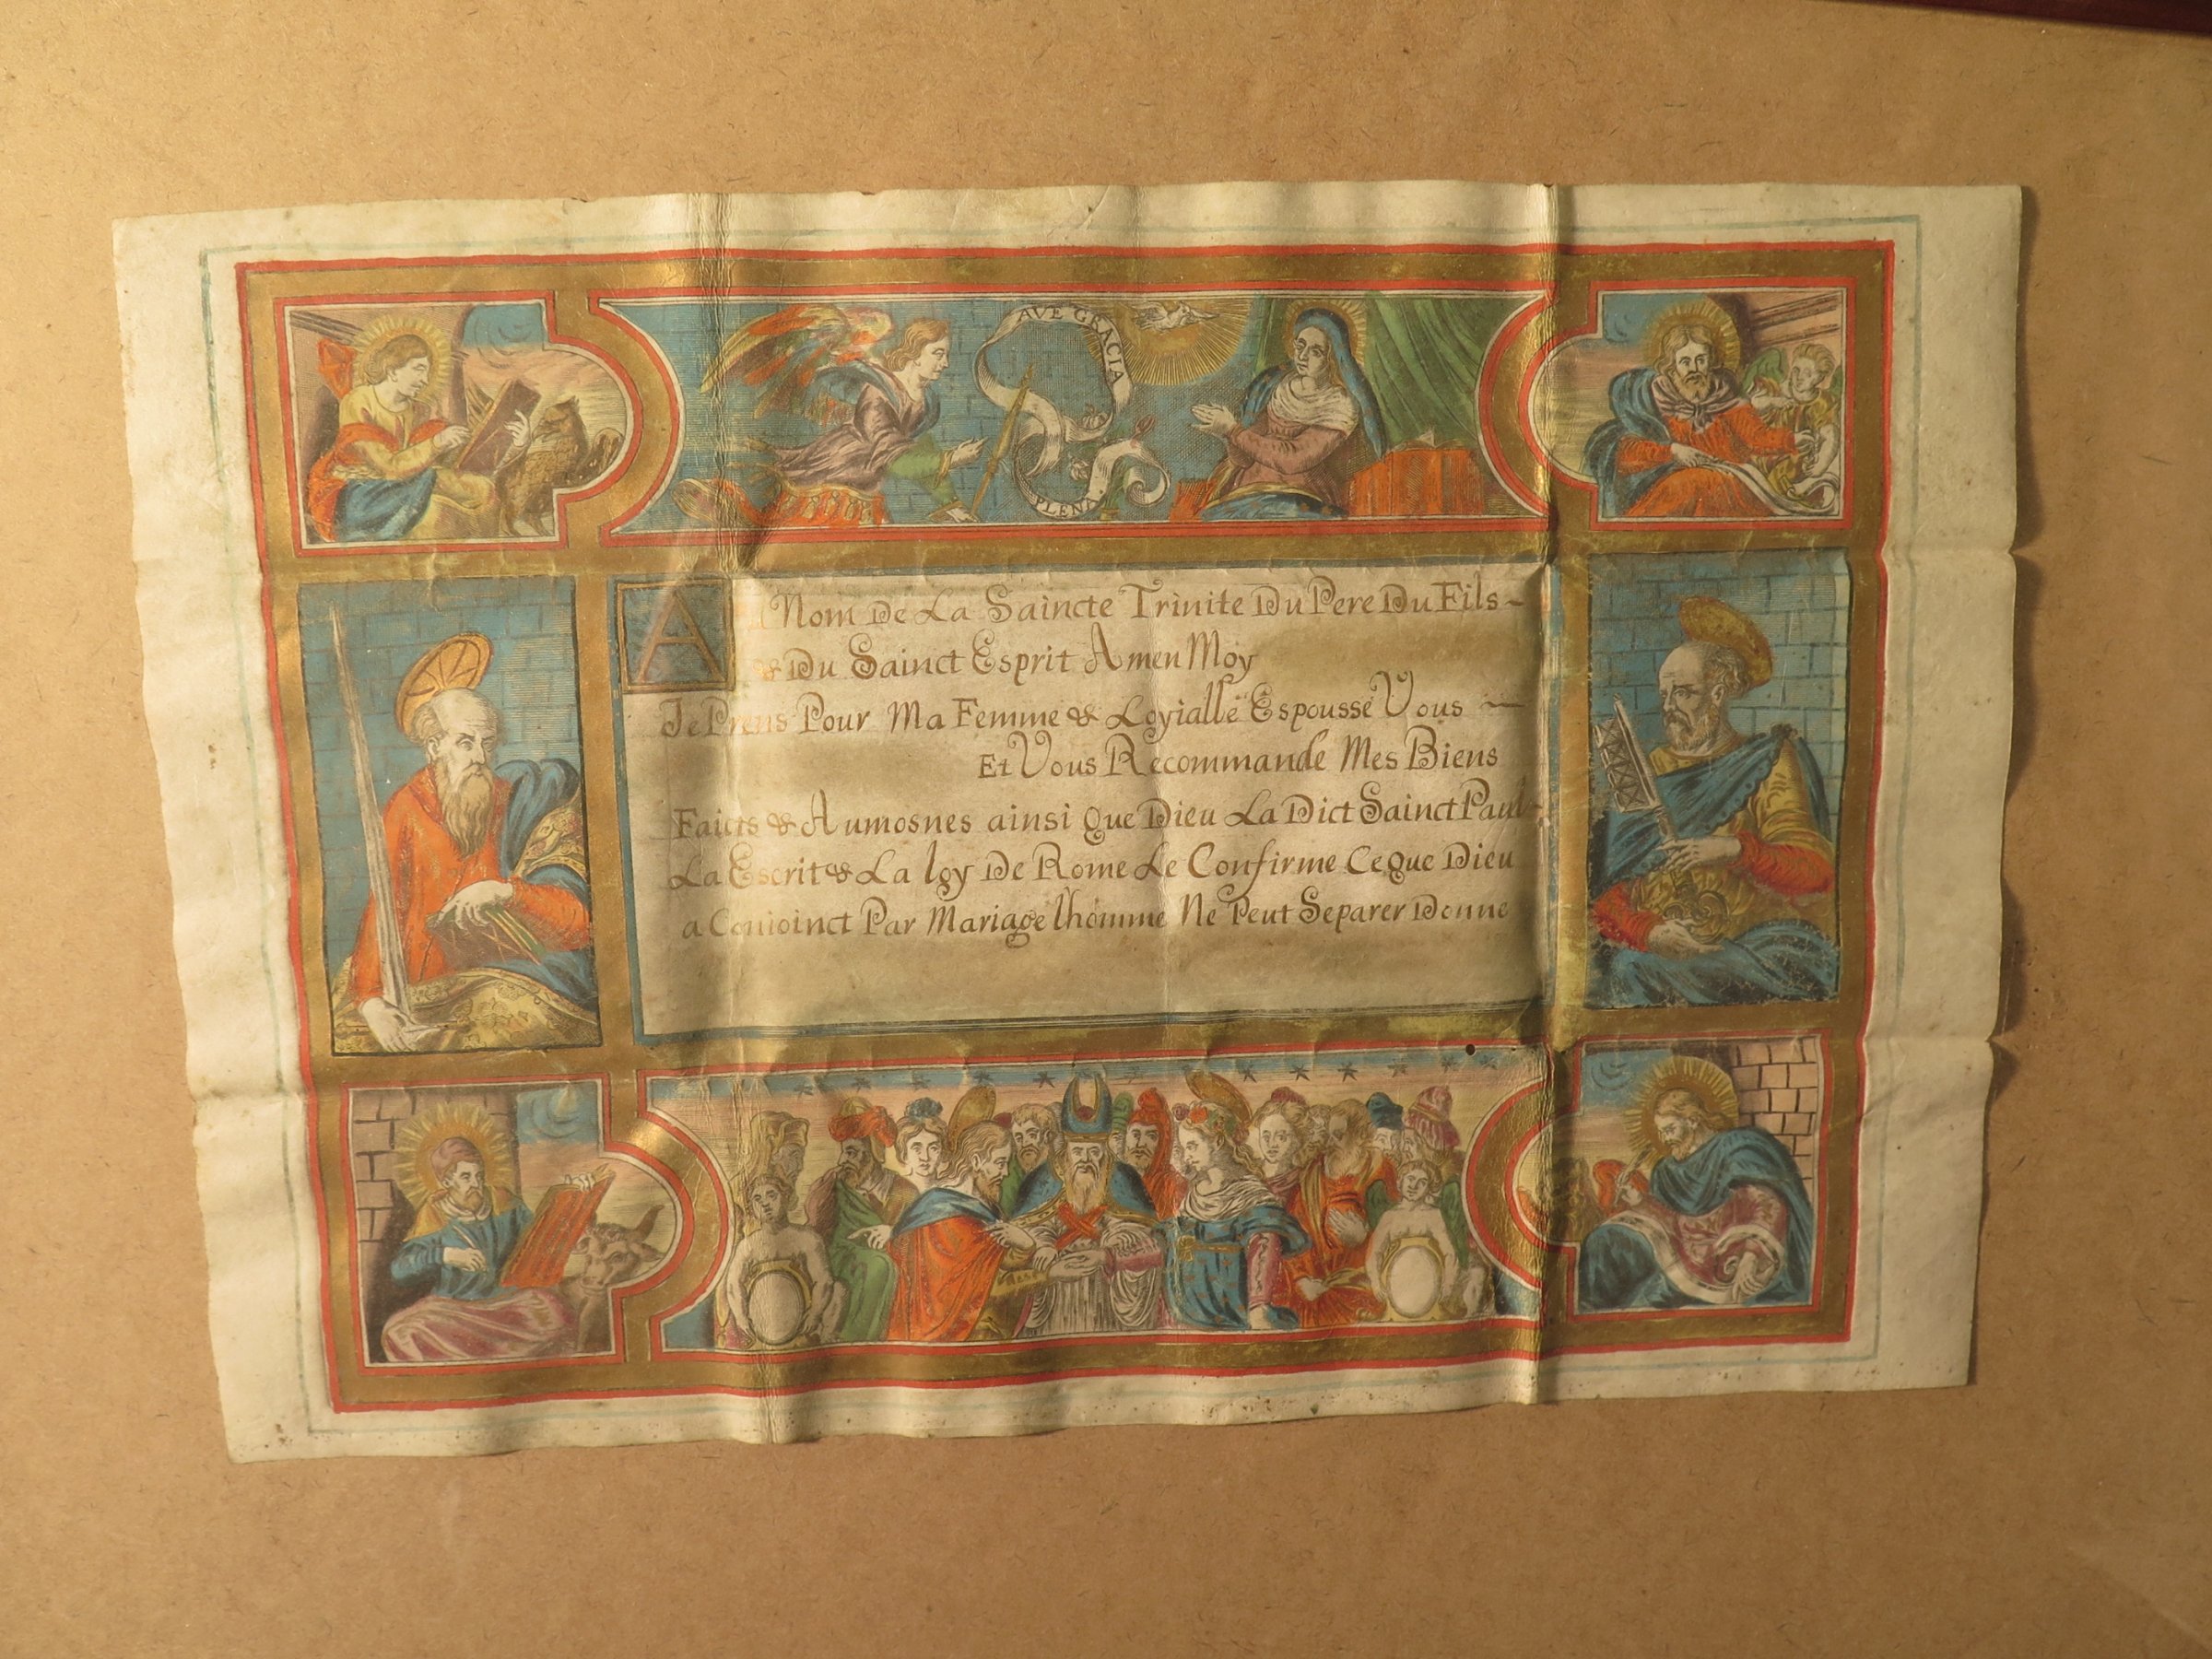 AVE GRACIA
PLENA
Au Nom De La Saincte Trinite Du Pere Du Fils ~
& Du Sainct Esprit Amen Moy
Je Prens Pour Ma Femme & Loyialle Espousse Vous ~
Et Vous Recommande Mes Biens
Faicts & Aumosnes ainsi que Dieu La Dict Sainct Paul
La Escrit & La loy De Rome Le Confirme Ce que Dieu
a Conioinct Par Mariage lhomme Ne Peut Separer Donne